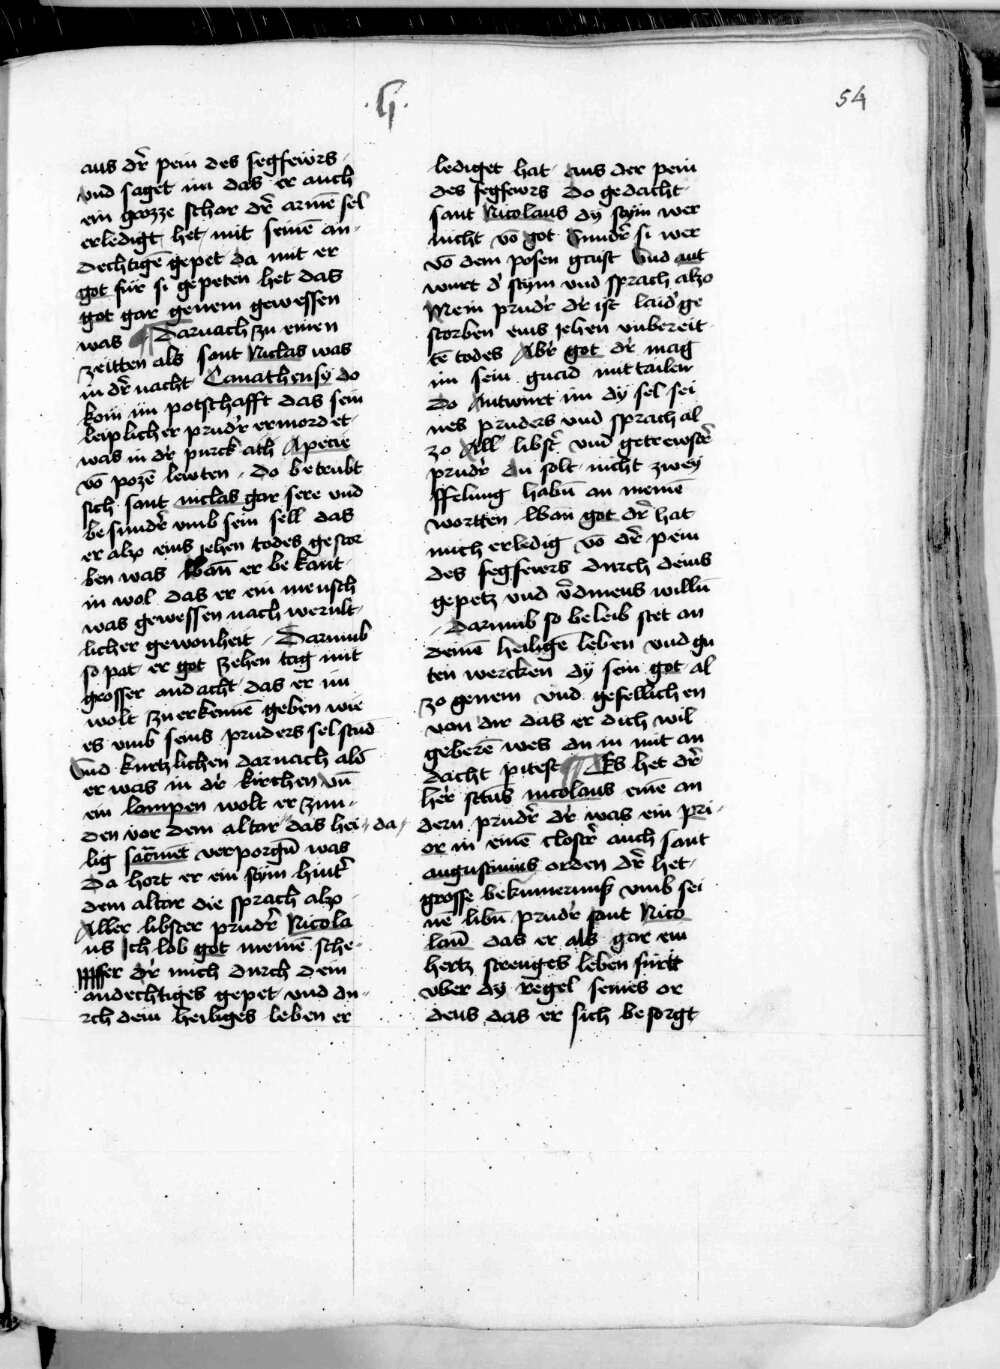 .G.
54
aus dr̄ pein des fegfewrs
vnd saget im das er auch
ein grozze schar dr̄ armē sel
erledigt het mit seinē an-
dechtigē gepet da mit er
got für si gepeten het das
got gar genem gewessen
was Darnach zu einen
zeitten als sant Niclas was
in dr̄ nacht Canathensy do
kom im potschafft das sein
leiplicher prudr̄ ermordet
was in dr̄ purck ach Apecie
vō pozē lewten Do betrubt
sich sant niclas gar sere vnd
besundr̄ vmb sein sell das
er alzo eins jehen todes gestor
ben was Wan̄ er bekant
in wol das er ein mensch
was gewessen nach werult-
licher gewonheit Darumb
so pat er got zehen tag mit
grosser andacht das er im
wolt zu erkennē geben wie
es vmb seins pruders sel stūd
Vnd kurtzlichen darnach also
er was in dr̄ kirchen vn̄
ein lampen wolt er zun-
den vor dem altar das hei- da
lig sacmēt verporgn̄ was
Da hort er ein stym hintr̄
dem altar die sprach alzo
Aller libster prudr̄ Nicola
us Ich lob got meinē sche-
pffer dr̄ mich durch dein
andechtiges gepet vnd du-
rch dein heiliges leben er
lediget hat aus der pein
des fegfewrs Do gedacht
sant Nicolaus dy stym wer
nicht vō got Sundr̄ si wer
vō dem posen gaist Vnd ant
wurt d' stym vnd sprach alzo
Mein prudr̄ dr̄ ist laid'ge
storben eins jehen vnbereit
tē todes Abr̄ got dr̄ mag
im sein gnad mittailen
Do Antwurt im dy sel sei
nes pruders vnd sprach al
zo All' libstr̄ vnd getrewstr̄
prudr̄ du solt nicht zwey
ffelung habn̄ an meinē
wortten Wan̄ got dr̄ hat
mich erledig vō dr̄ pein
des fegfewrs durch deins
gepetz vnd v̄dinens willn̄
Darumb so beleib stet an
deinē heiligē leben vnd gu
ten wercken dy sein got al
zo genem vnd gefellichen
von dir das er dich wil
geberē wes du in mit an
dacht pitest Es het dr̄
her sctūs nicolaus einē an
dern prudr̄ dr̄ was ein pri-
or in einē clostr̄ auch sant
augustinus orden dr̄ het
grosse bekumernuß vmb sei
nē libn̄ prudr̄ sant Nico
laū das er als gar ein
hertz strenges leben fürtt
vber dy regel seines or
dens das er sich besorgt